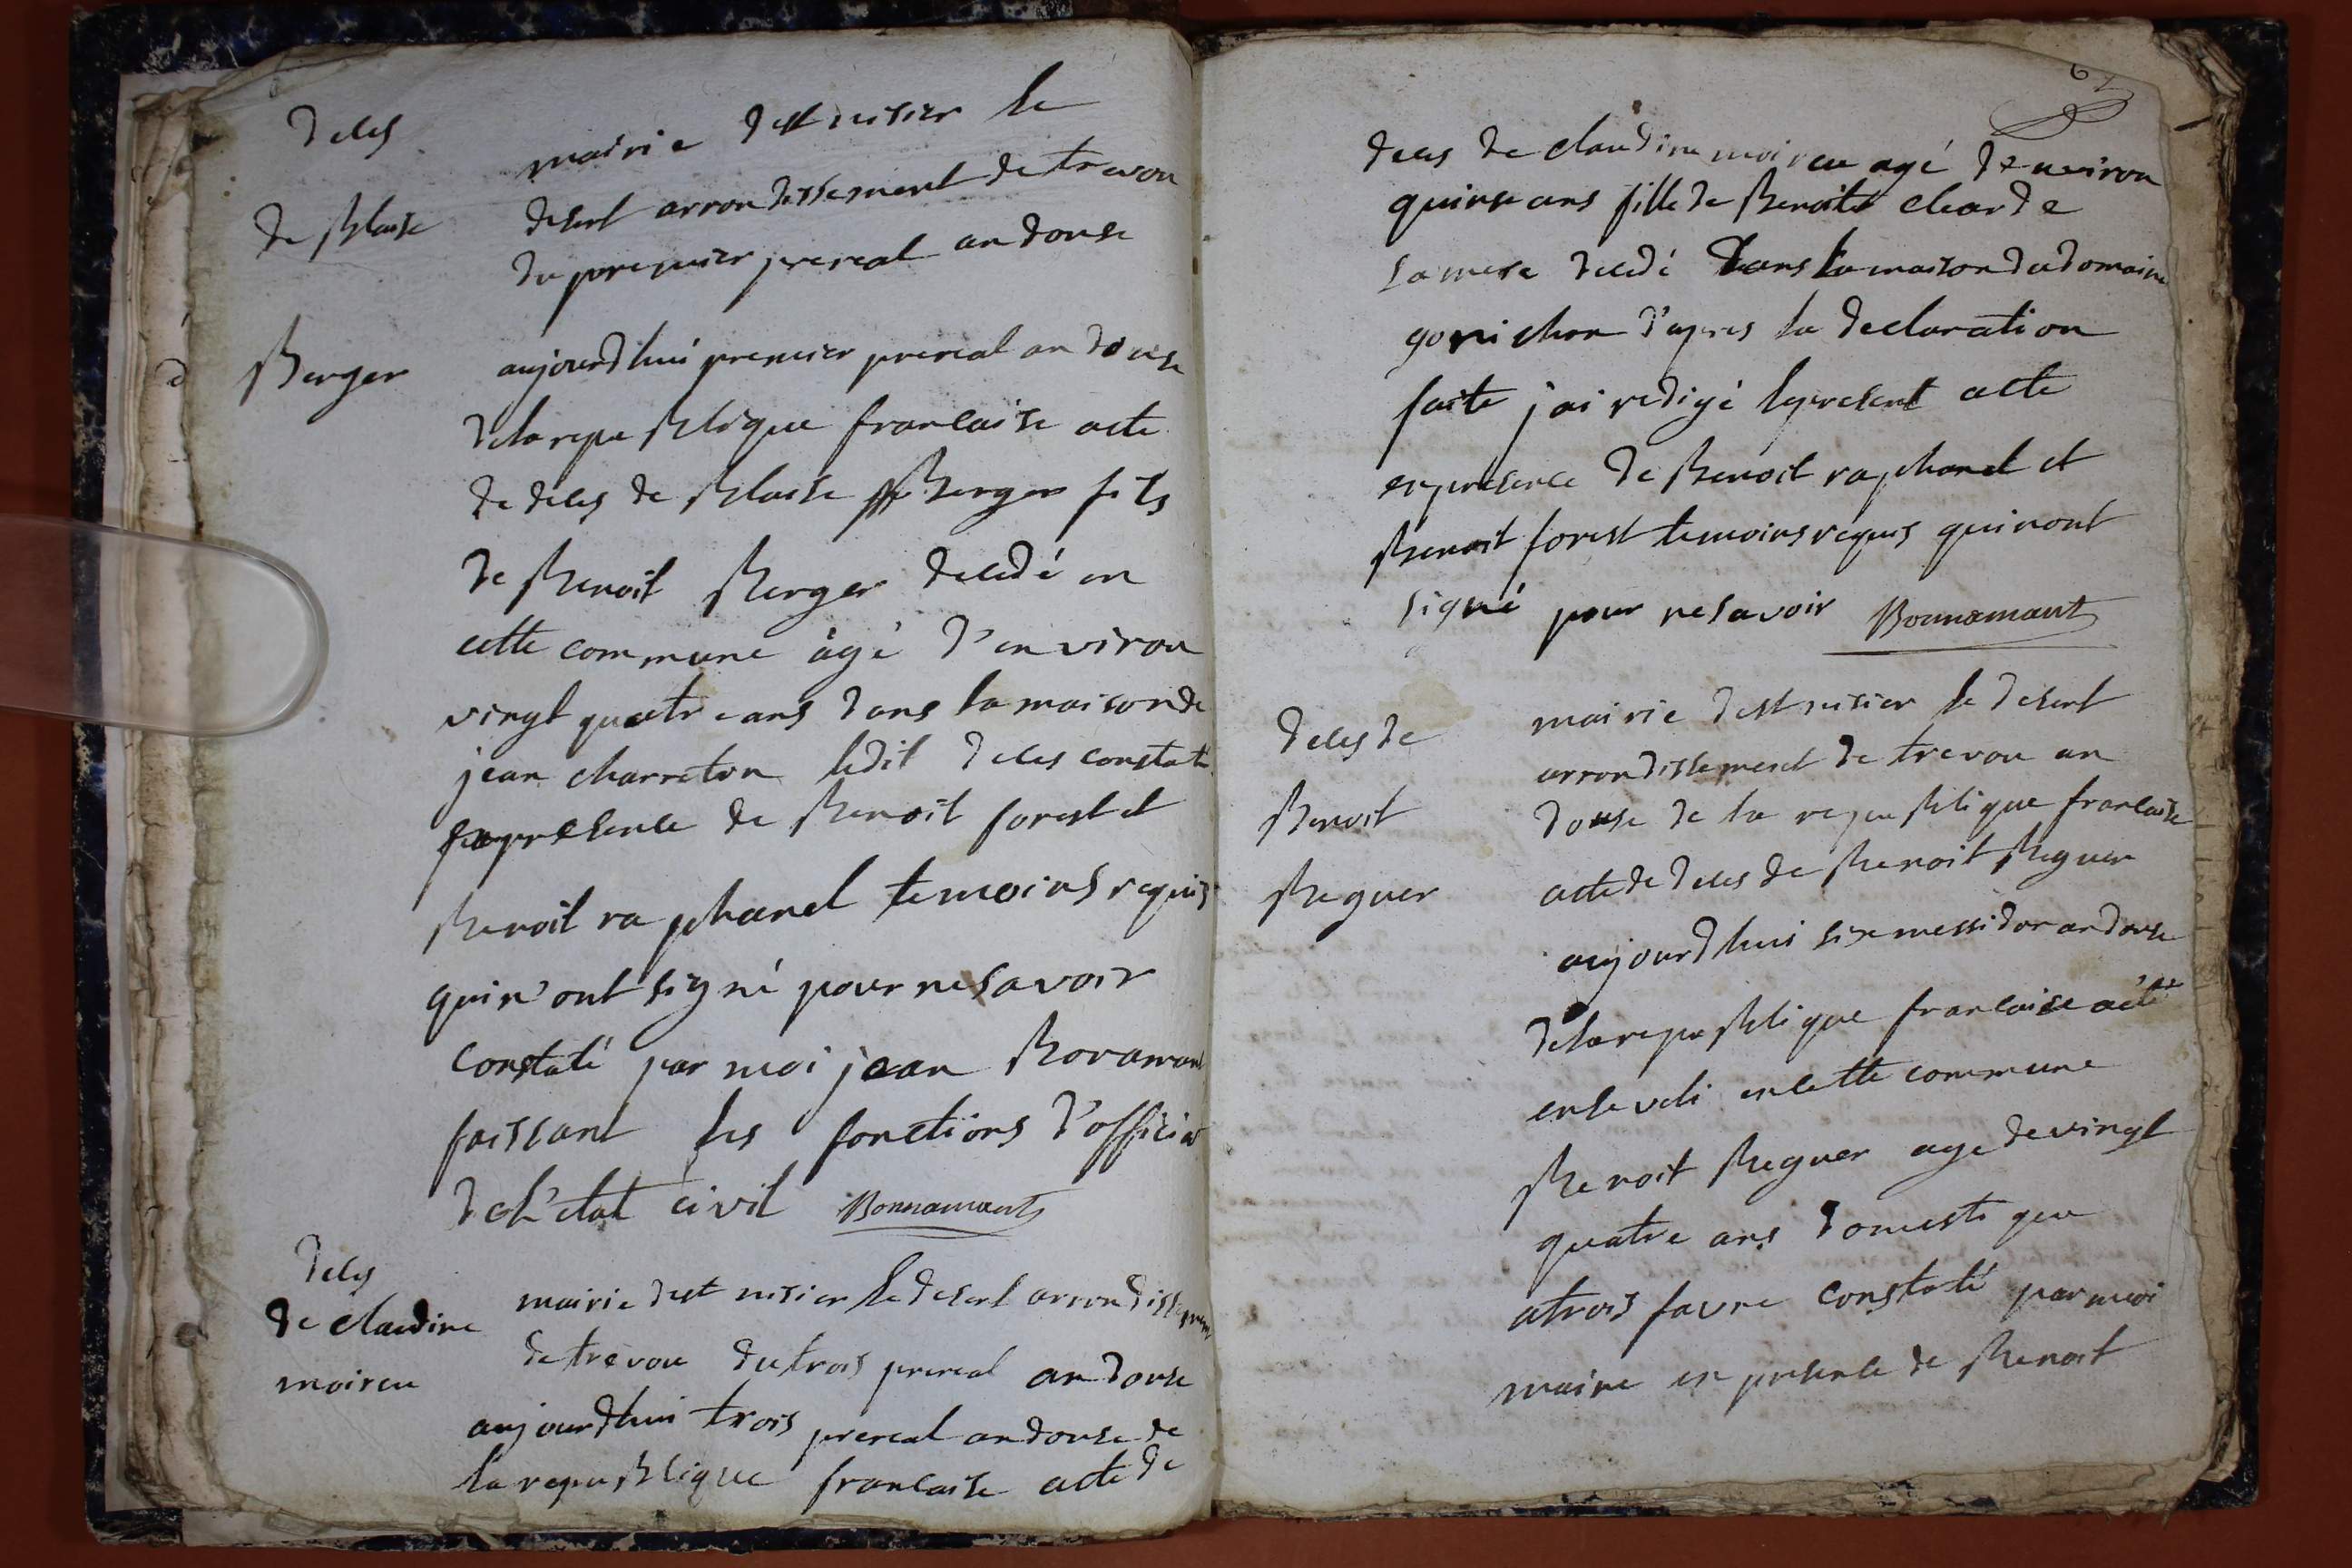 deces
de Blaise
Berger
mairie dest nisier le
desert arrondissement de trevou
du premier prereal an douse
aujourdhui premier prereal an douse
delarepublique francaise acte
de deces de Blaise Berger fils
de Benoit Berger decedé en
cette commune âgé d'environ
vingt quatre ans dans la maison de
jean charreton ledit deces constaté
en presence de Benoit forest et
Benoit raphanel temoins requis
quin'ont signé pour ne savoir
constaté par moi jean Bonamant
faissant les fonctions d'officier
del'etat civil Bonnamant
deces
de claudine
moireu
mairie dest nisier le desert arrondissement
de trevou du trois prereal an douse
aujourdhui trois prereal an douse de
la republique francaise acte de
deces de claudine moireu agé denviron
quinse ans fille de Benoite clear de
sa mere decedé dans la maison du domaine
gonichon d'apres la declaration
faite jai redigé lepresent acte
enpresence de Benoit raphanel et
Benoit forest temoins requis quinont
signé pour nesavoir Bonnamant
deces de
Benoit
Beguer
mairie dest nisier le desert
arrondissement de trevou an
douse de la republique francaise
acte de deces de Benoit Beguer
aujourdhui six messidor an douse
delarepublique francaise a été
enseveli en cette commune
Benoit Beguer age de vingt
quatre ans domestique
atrois favre constaté par moi
maire en presence de Benoit